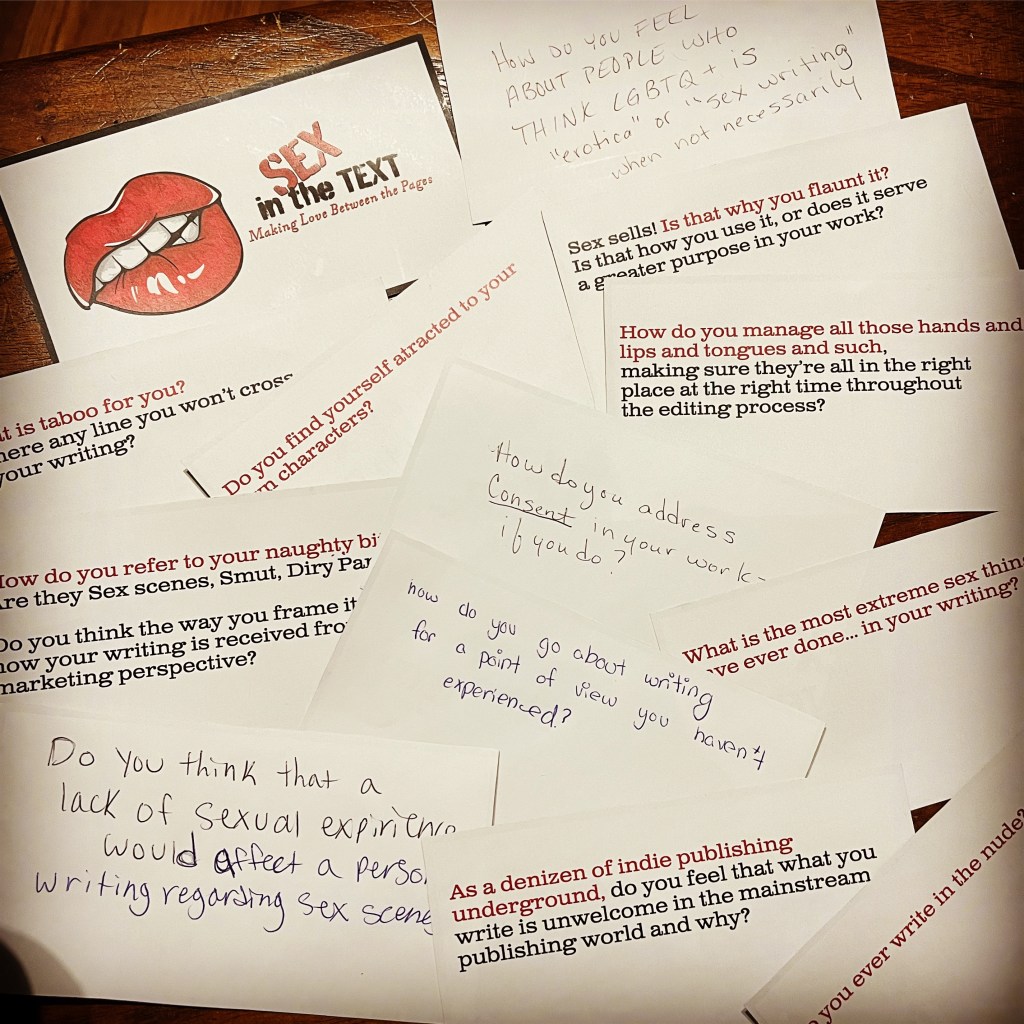 SEX
in the TEXT
Making Love Between the Pages
HOW DO YOU FEEL
ABOUT PEOPLE WHO
THINK LGBTQ+ IS
"erotica" or "sex writing"
when not necessarily
Sex sells! Is that why you flaunt it?
Is that how you use it, or does it serve
a greater purpose in your work?
How do you manage all those hands and
lips and tongues and such,
making sure they're all in the right
place at the right time throughout
the editing process?
is taboo for you?
any line you won't cross
your writing?
Do you find yourself atracted to your
characters?
How do you address
Consent in your work-
if you do?
How do you refer to your naughty
Are they Sex scenes, Smut, Diry
Do you think the way you frame it
how your writing is received
marketing perspective?
how do you go about writing
for a point of view you haven't
experienced?
What is the most extreme sex
ever done... in your writing?
Do you think that a
lack of sexual
would affect a
writing regarding sex
As a denizen of indie publishing
underground, do you feel that what you
write is unwelcome in the mainstream
publishing world and why?
you ever write in the nude?